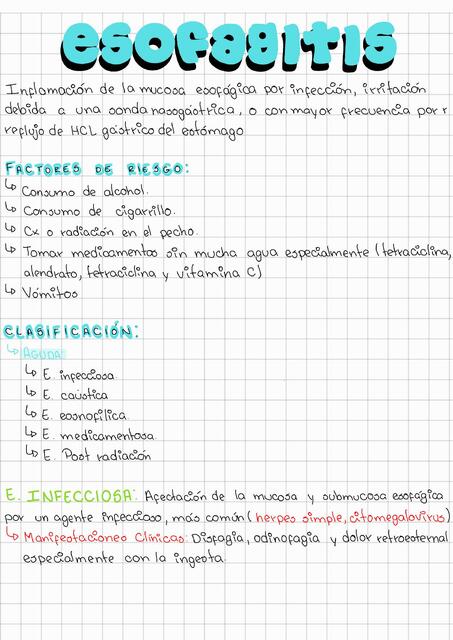 esofagitis
Inflamación de la mucosa esofágica por infección, irritación
debida a una sonda nasogástrica, o con mayor frecuencia por r
reflujo de HCL gástrico del estómago
FACTORES DE RIESGO:
↳ Consumo de alcohol.
↳ Consumo de cigarrillo.
↳ Cx o radiación en el pecho.
↳ Tomar medicamentos sin mucha agua especialmente (tetraciclina,
alendrato, tetraciclina y vitamina C)
↳ Vómitos
CLASIFICACIÓN:
↳ AGUDA:
↳ E. infecciosa.
↳ E. caústica
↳ E. eosnofílica.
↳ E. medicamentosa.
↳ E. Post radiación
E. INFECCIOSA: Afectación de la mucosa y submucosa esofágica
por un agente infeccioso, más común (herpes simple, citomegalovirus)
↳ Manifestaciones Clínicas: Disfagia, odinofagia y dolor retroesternal
especialmente con la ingesta.